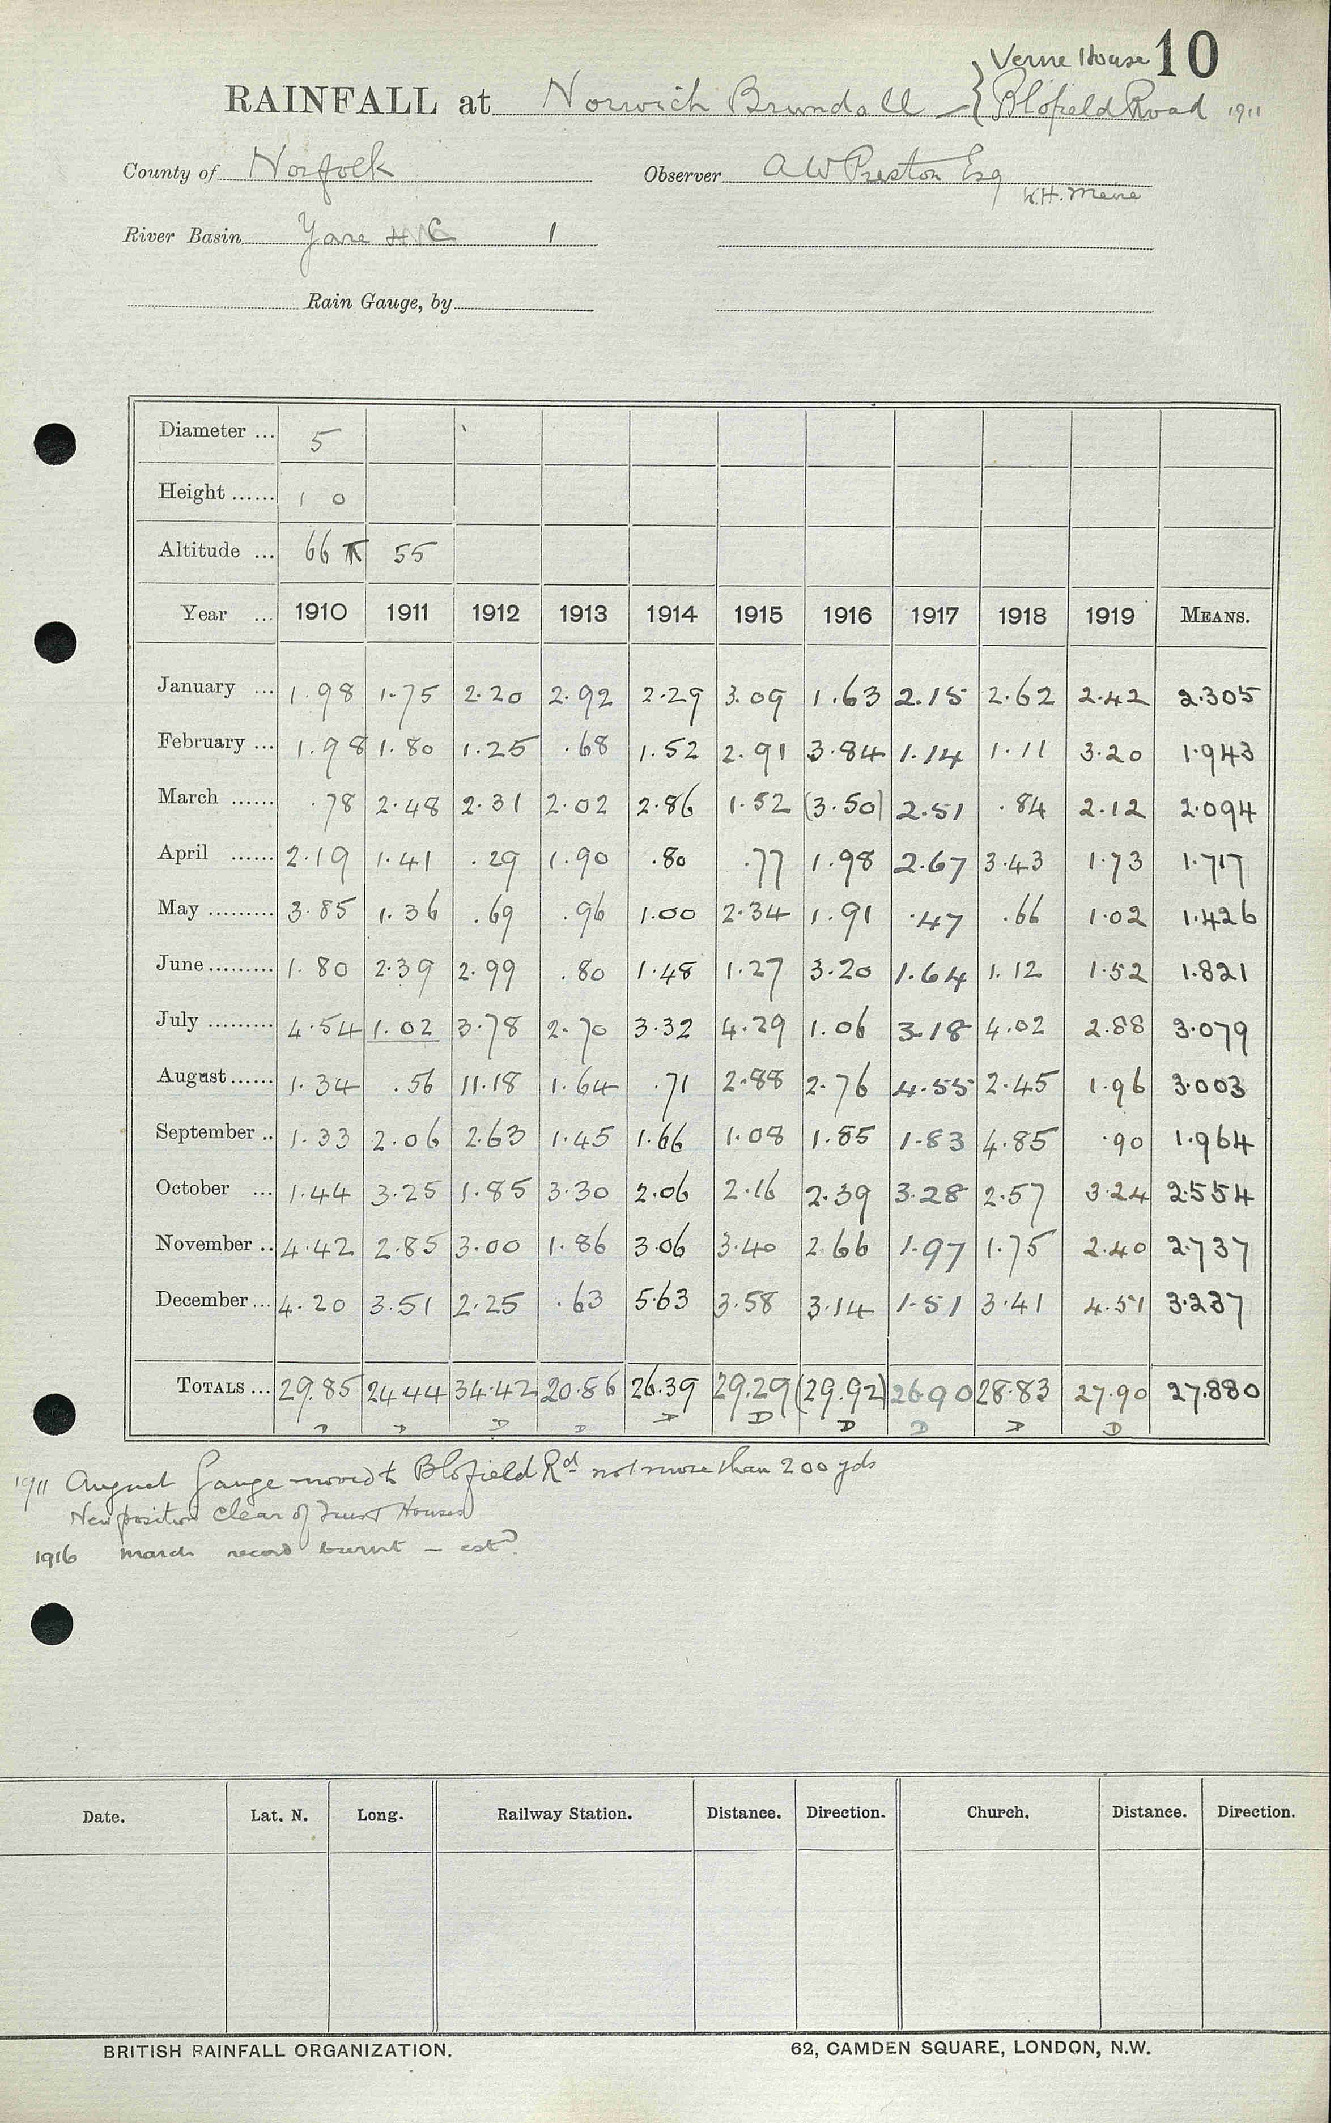 Verne House 10
RAINFALL at Norwich Brundall { Blofield Road 1911
County of Norfolk Observer A W Preston Esq
River Basin Yare 1
Rain Gauge, by
Diameter ... 5
Height ...... 1 0
Altitude ... 66 55
Year ... 1910 1911 1912 1913 1914 1915 1916 1917 1918 1919 MEANS.
January ... 1.98 1.75 2.20 2.92 2.29 3.09 1.63 2.15 2.62 2.42 2.305
February ... 1.98 1.80 1.25 .68 1.52 2.91 3.84 1.14 1.11 3.20 1.943
March ...... .78 2.48 2.31 2.02 2.86 1.52 (3.50) 2.51 .84 2.12 2.094
April ...... 2.19 1.41 .29 1.90 .80 .77 1.98 2.67 3.43 1.73 1.717
May ......... 3.85 1.36 .69 .96 1.00 2.34 1.91 .47 .66 1.02 1.426
June ......... 1.80 2.39 2.99 .80 1.48 1.27 3.20 1.64 1.12 1.52 1.821
July ......... 4.54 1.02 3.78 2.70 3.32 4.29 1.06 3.18 4.02 2.88 3.079
August ...... 1.34 .56 11.18 1.64 .71 2.88 2.76 4.55 2.45 1.96 3.003
September .. 1.33 2.06 2.63 1.45 1.66 1.08 1.85 1.83 4.85 .90 1.964
October ... 1.44 3.25 1.85 3.30 2.06 2.16 2.39 3.28 2.57 3.24 2.554
November .. 4.42 2.85 3.00 1.86 3.06 3.40 2.66 1.97 1.75 2.40 2.737
December ... 4.20 3.51 2.25 .63 5.63 3.58 3.14 1.51 3.41 4.51 3.237
TOTALS ... 29.85 24.44 34.42 20.86 26.39 29.29 (29.92) 26.90 28.83 27.90 27.880
D D D D D D D D D D
1911 August Gauge moved to Blofield Rd not more than 200 yds
New position clear of Houses
1916 march record burnt – estd.
Date. Lat. N. Long. Railway Station. Distance. Direction. Church. Distance. Direction.
BRITISH RAINFALL ORGANIZATION. 62, CAMDEN SQUARE, LONDON, N.W.